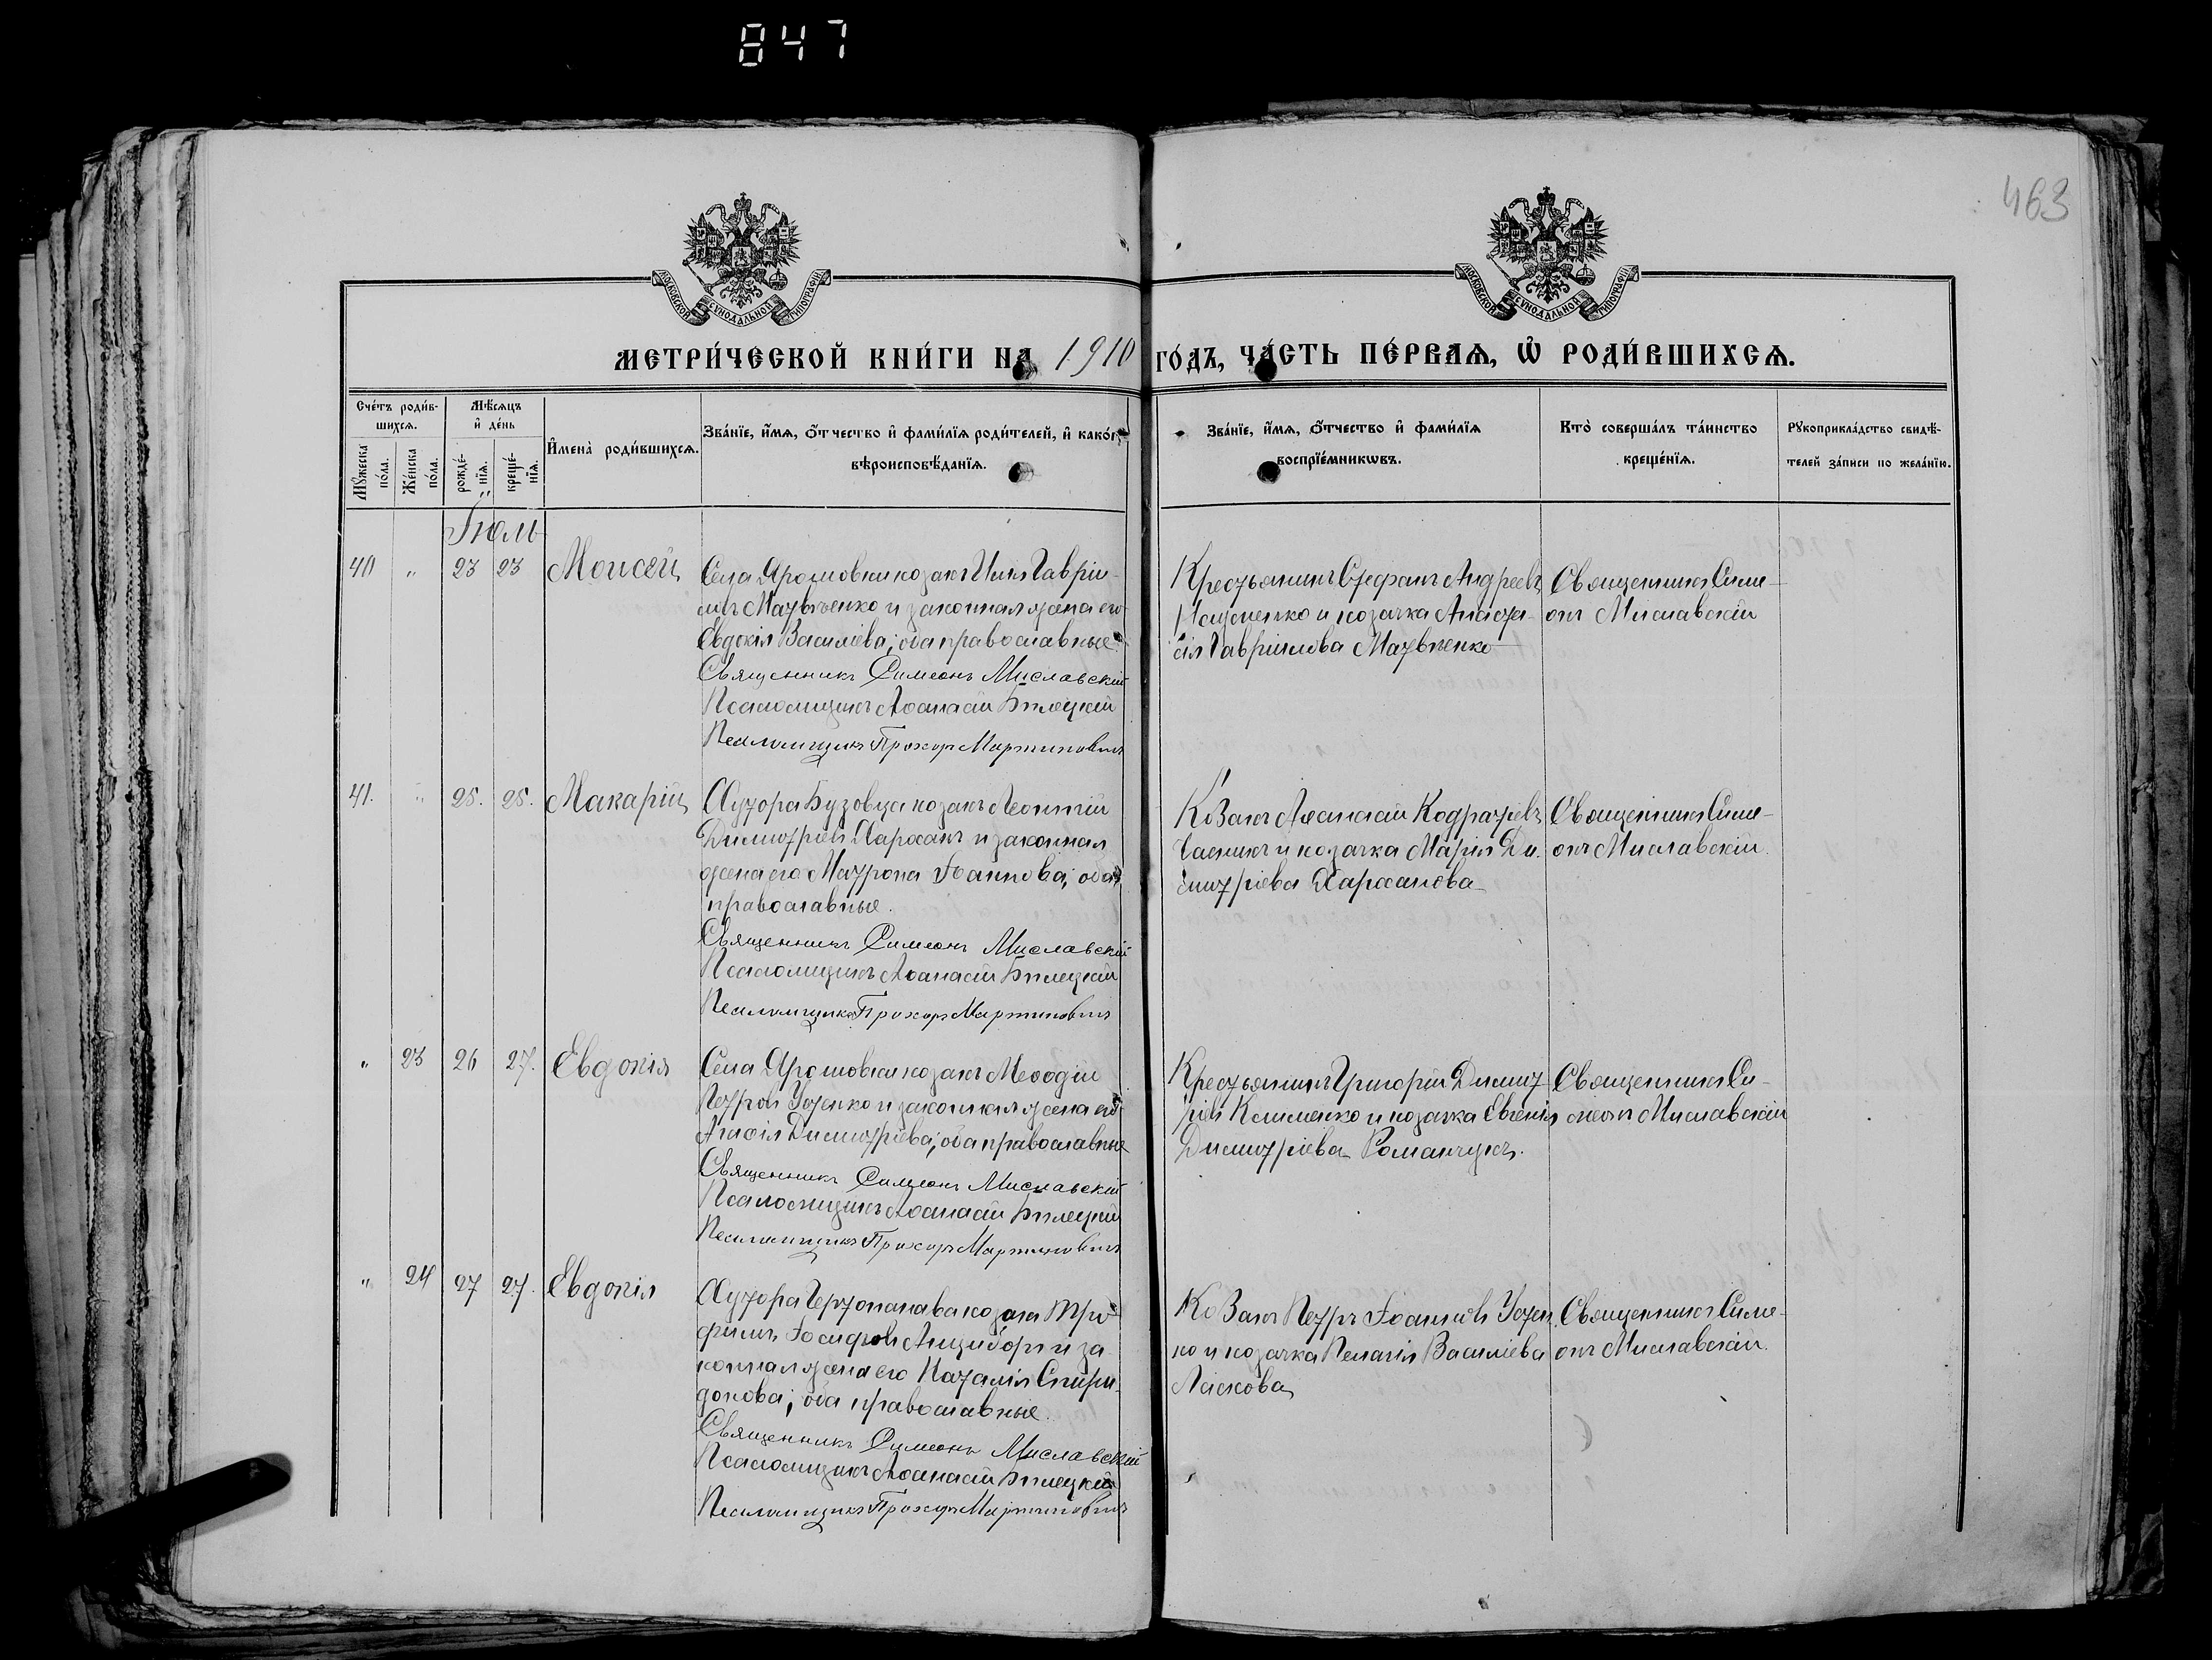 847
463
МОСКОВСКОЙ СѴНОДАЛЬНОЙ ТИПОГРАФІИ
МОСКОВСКОЙ СѴНОДАЛЬНОЙ ТИПОГРАФІИ
МЕТРИ́ЧЕСКОЙ КНИ́ГИ НА 1910 ГО́ДЪ, ЧА́СТЬ ПЕ́РВАѦ, Ѡ҆ РОДИ́ВШИХСѦ.
Сче́тъ роди́в-
шихсѧ.
Мꙋ́жеска
по́ла.
Же́нска
по́ла.
Мѣ́сѧцъ
и҆ де́нь
рожде́-
нїѧ.
креще́-
нїѧ.
И҆мена̀ роди́вшихсѧ.
Зва́нїе, и҆́мѧ, ѻ҆́тчество и҆ фами́лїѧ роди́телей, и҆ како́гѡ
вѣроисповѣ́данїѧ.
Зва́нїе, и҆́мѧ, ѻ҆́тчество и҆ фами́лїѧ
воспрїе́мникѡвъ.
Кто̀ соверша́лъ та́инство
креще́нїѧ.
Рꙋкоприкла́дство свидѣ́-
телей за́писи по жела́нїю.
Іюль
40 " 23 23 Моисей
Села Ярошовки козакъ Илія Гаврiи-
ловъ Матвѣенко и законная жена его
Евдокія Василіева; оба православные.
Священникъ Симеонъ Миславскій
Псаломщикъ Аѳанасій Билецкій
Псаломщикъ Прохоръ Мартиновичъ
Крестьянинъ Стефанъ Андреевъ
и козачка Анаста-
сія Гавріилова Матвѣенко
Священникъ Симе-
онъ Миславскій
41. " 25. 25. Макарій
Хутора Бузовца козакъ Леонтій
Димитріевъ Пархамъ и законная
жена его Матрона Іоаннова; оба
православные.
Священникъ Симеонъ Миславскій
Псаломщикъ Аѳанасій Билецкій
Псаломщикъ Прохоръ Мартиновичъ
Козакъ Аѳанасій Кодратіевъ
и козачка Марія Ди-
митріева Парханова
Священникъ Симе-
онъ Миславскій.
" 23 26 27. Евдокія
Села Ярошовки козакъ Меѳодій
Петровъ и законная жена его
Агафія Димитріева; оба православные
Священникъ Симеонъ Миславскій
Псаломщикъ Аѳанасій Билецкій
Псаломщикъ Прохоръ Мартиновичъ
Крестьянинъ Григорій Димит-
ріевъ Клименко и козачка Евгенія
Димитріева Романчукъ.
Священникъ Си-
меонъ Миславскій
" 24 27 27. Евдокія
Хутора козакъ Тро-
фимъ Іосифовъ Анцибор и за-
конная жена его Наталія Спири-
донова; оба православные.
Священникъ Симеонъ Миславскій
Псаломщикъ Аѳанасій Билецкій
Псаломщикъ Прохоръ Мартиновичъ
Козакъ Петръ Іоанновъ
и козачка Пелагія Василіева
Ласкова
Священникъ Симе-
онъ Миславскій.